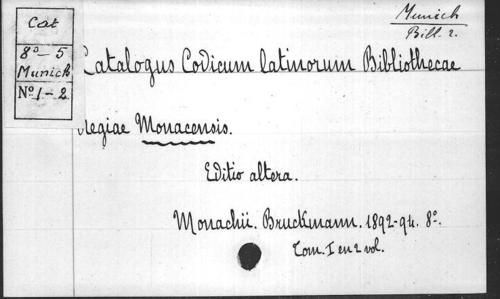 Cat
8° – 5
Munich
N° 1–2
Munich
Bibl. 2.
Catalogus Codicum latinorum Bibliothecae
Regiae Monacensis.
Editio altera.
Monachii. Bruckmann. 1892–94. 8°.
Tom. I en 2 vol.